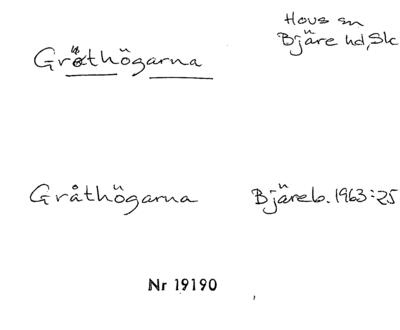 Gråthögarna
Hovs sn
Bjäre hd, Sk
Gråthögarna Bjäreb. 1963:25
Nr 19190